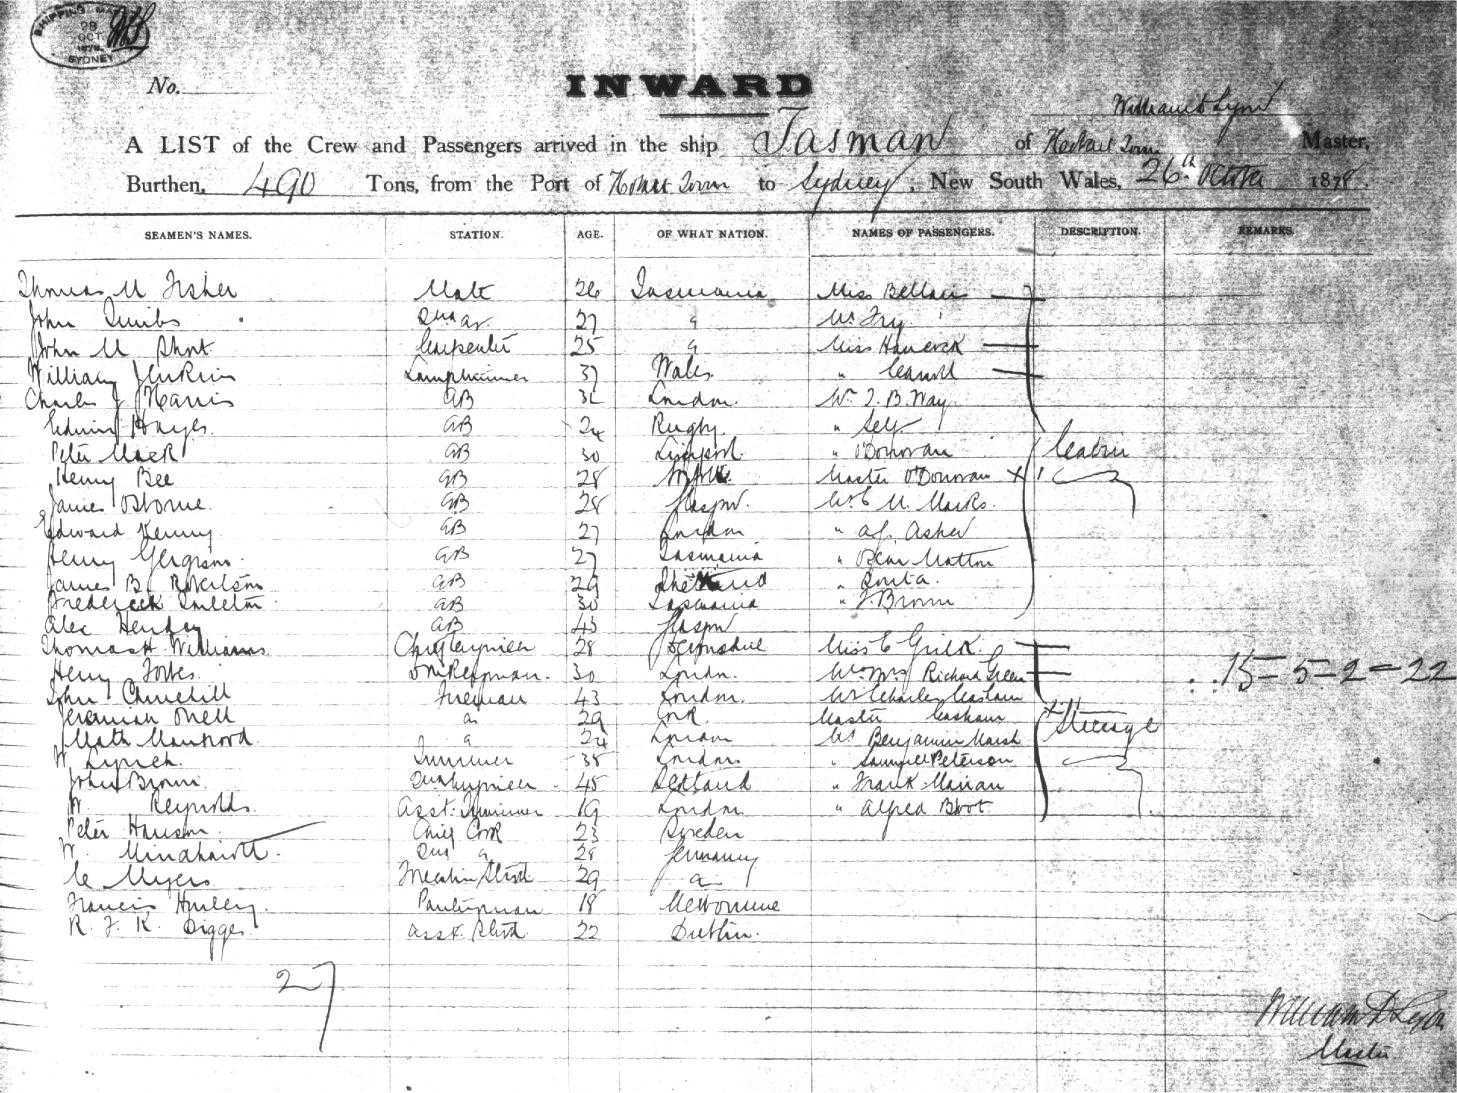 SHIPPING MA
28
OCT
1878
SYDNEY
No.
INWARD
William D Lyon
A LIST of the Crew and Passengers arrived in the ship Tasman of Hobart Town Master,
Burthen, 490 Tons, from the Port of Hobart Town to Sydney, New South Wales, 26th October 1878.
SEAMEN'S NAMES. STATION. AGE. OF WHAT NATION. NAMES OF PASSENGERS. DESCRIPTION. REMARKS.
Thomas M Fisher Mate 26 Tasmania Miss Bellair
John 27 " Mr Fry
John M Short Carpenter 25 " Miss Hancock
William Jenkins Lamptrimmer 37 Wales "
Charles J Harris AB London. Mr J. B. Way
Edwin Hayes AB 24 Rugby " Self
Peter Mack AB 30 Liverpool. " O'Donovan Cabin
Henry Bee AB 28 Master O'Donovan X
James Osborne AB 28 Glasgow. Mr C M Marks.
Edward Kenny AB 27 London " A J. Asher
Henry AB 27 Tasmania "
James B. Robertson AB 29 Shetland "
Frederick AB 30 Tasmania " J. Brown
Alec AB 43 Glasgow
Thomas H Williams Chief Engineer 28 Devonshire Miss E
Henry Forbes 30 London. Mr Mrs Richard Green 15-5-2=22
John Churchill Fireman 43 London. Mr Charles
Jeremiah Oneil " 29 Cork. Master
" 24 London Mr Benjamin Marsh Steerage
W Lynch. Trimmer 38 London " Samuel Peterson
John Brown. 45 Scotland " Frank
W Reynolds. Asst. 19 London. " Alfred Boot
Peter Hanson Chief Cook 23 Sweden
W. 2nd " 28 Germany
C Myers 29 "
Francis Hurley. Pantryman 18 Melbourne
R. J. K. Digges Asst. Stwd. 22 Dublin.
27
William D Lyon
Master